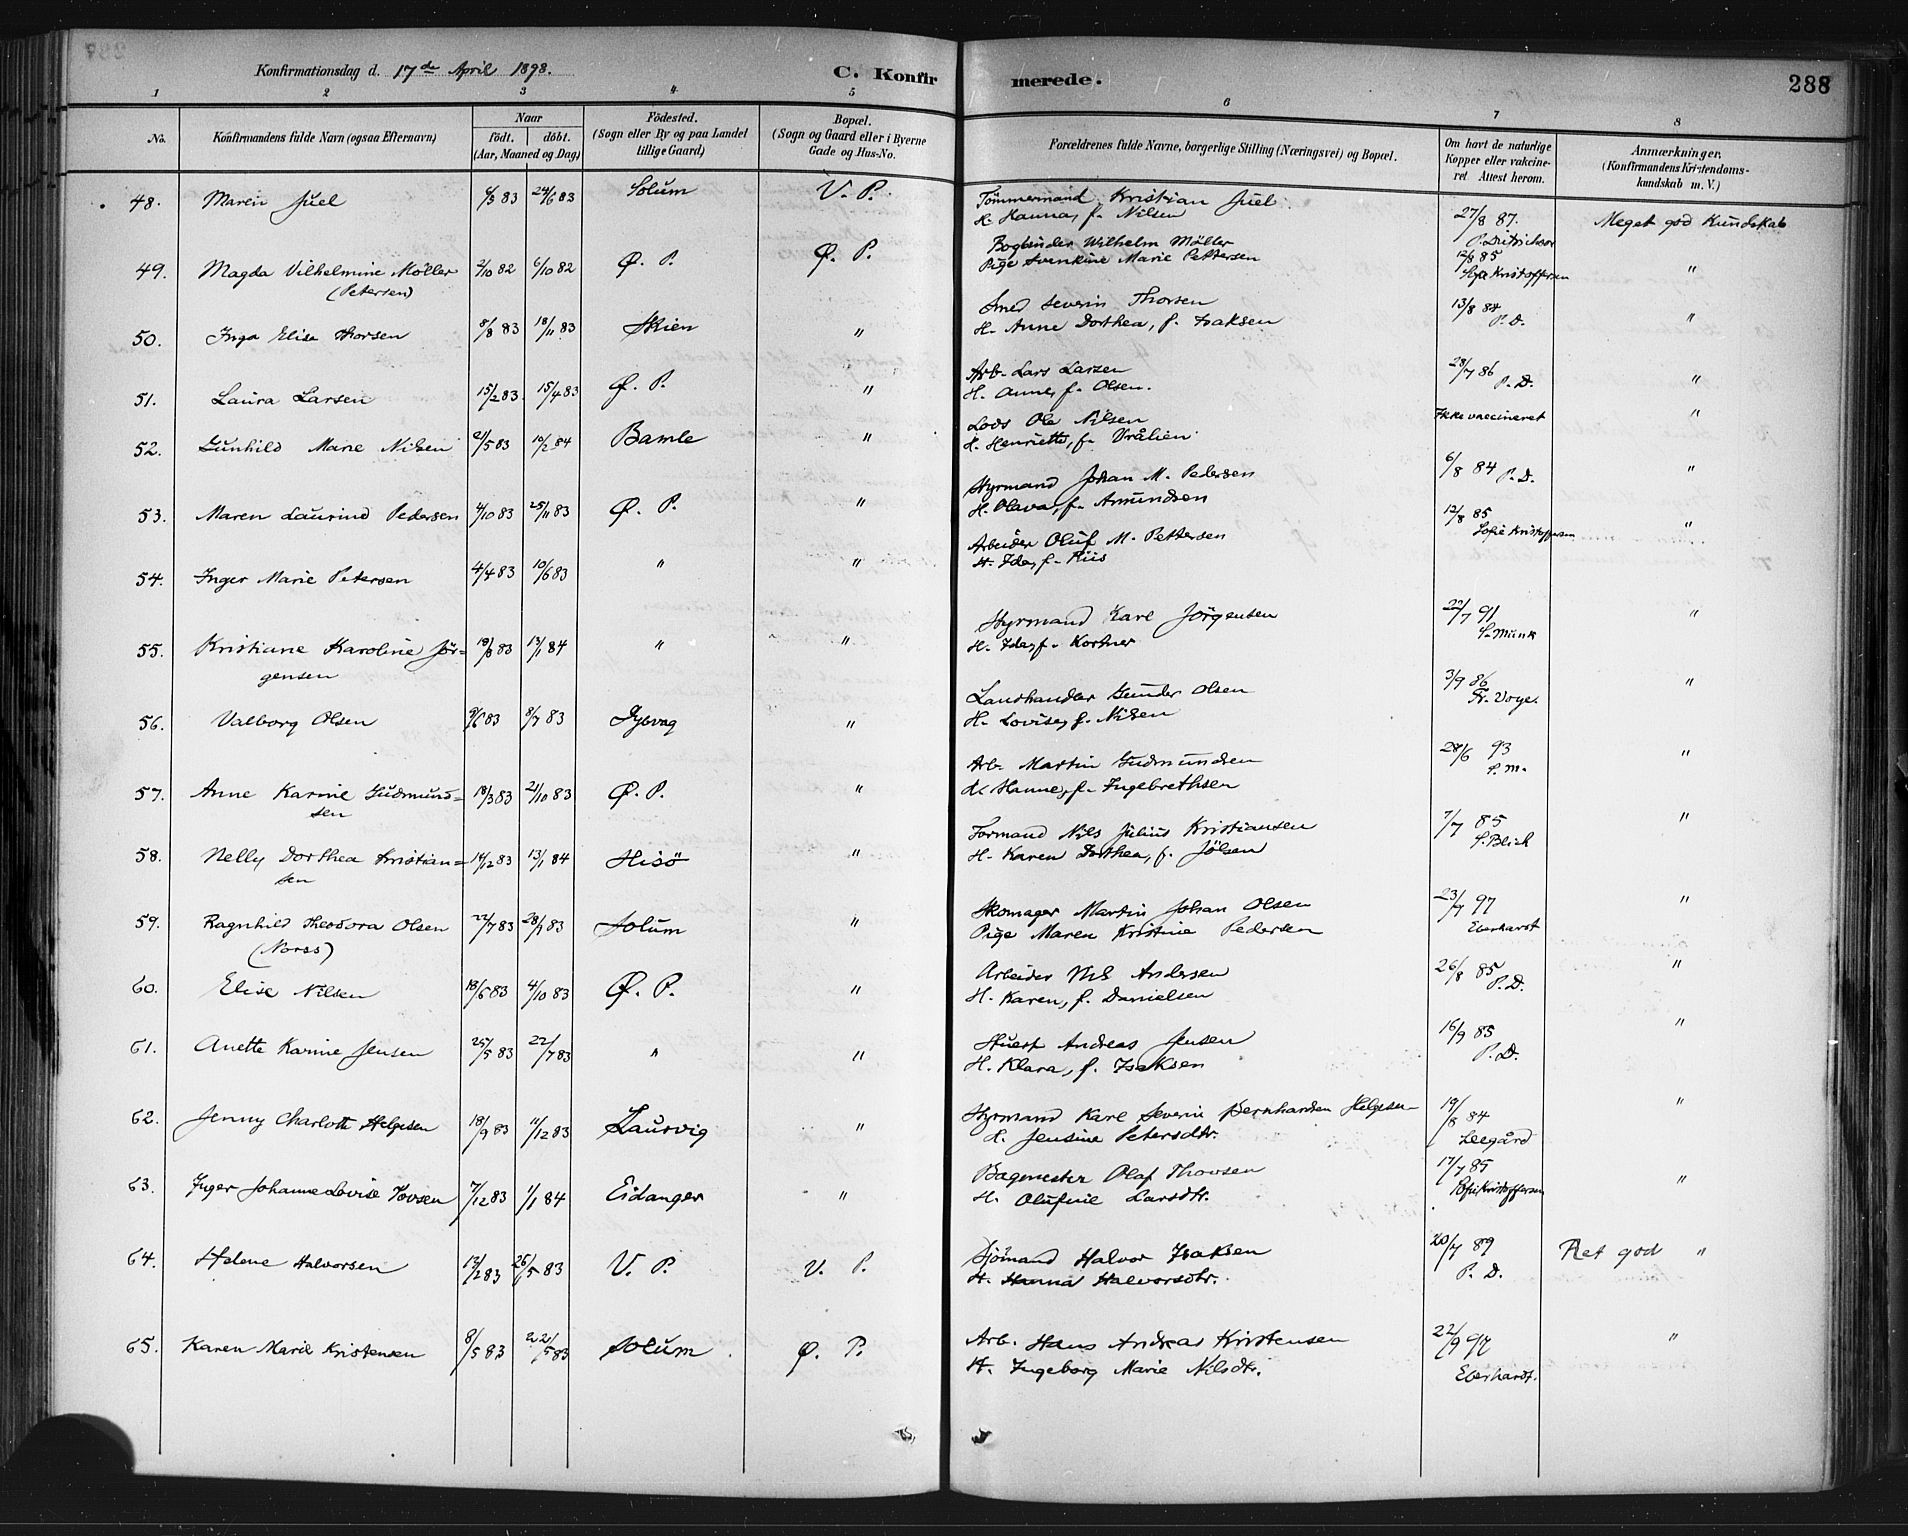 Konfirmationsdag d. 17de April 1898.
C. Konfirmerede.
288
1 2 3 4 5 6 7 8
No.
Konfirmandens fulde Navn (ogsaa Efternavn)
Naar
födt. döbt.
(Aar, Maaned og Dag)
Födested.
(Sogn eller By og paa Landet
tillige Gaard)
Bopæl.
(Sogn og Gaard eller i Byerne
Gade og Hus-No.
Forældrenes fulde Navne, borgerlige Stilling (Næringsvei) og Bopæl.
Om havt de naturlige
Kopper eller vakcine-
ret. Attest herom.
Anmærkninger.
(Konfirmandens Kristendoms-
kundskab m. V.)
48. Maren Juel 6/3 83 24/6 83 Solum V. P. Tömmermand Kristian Juel
H. Hanna, f. Nilsen 27/8 87. P. Dietrichson Meget god Kundskab
49. Magda Vilhelmine Möller 2/10 82 6/10 82 Ø. P. Ø. P. Bogbinder Wilhelm Möller
(Petersen) Pige Svenkine Marie Pettersen 12/8 85 Kristoffersen "
50. Inga Elise Thorsen 8/8 83 18/11 83 Skien " Smed Severin Thorsen
H. Anne Dorthea, f. Isaksen 13/8 84 P. D. "
51. Laura Larsen 15/2 83. 15/4 83 Ø. P. " Arb. Lars Larsen
H. Anne, f. Olsen. 28/7 86 P. D. "
52. Gunhild Marie Nilsen 21/5 83 10/2 84 Bamle " Lods Ole Nilsen
H. Henriette, f. Vrålien Ikke vaccineret "
53. Maren Laurine Pedersen 4/10 83 25/11 83 Ø. P. " Styrmand Johan M. Pedersen
H. Olava, f. Amundsen 6/8 84 P. D. "
54. Inger Marie Petersen 4/4 83 10/6 83 " " Arbeider Oluf M. Pettersen
H. Ida, f. Riis 12/8 85 Sofie Kristoffersen "
55. Kristiane Karoline Jör- 19/8 83 13/1 84 " " Styrmand Karl Jörgensen
gensen H. Ida, f. Kortner 22/7 91 S. Munk "
56. Valborg Olsen 9/6 83 8/7 83 Dybvag " Landhandler Gunder Olsen
H. Lovise, f. Nilsen 3/9 86 Fr. Voye. "
57. Anne Karine Gudmund- 18/3 83 21/10 83 Ø. P. " Arb. Martin Gudmundsen
sen H. Hanne, f. Ingebrethsen 28/6 93 S. M. "
58. Nelly Dorthea Kristian- 14/12 83 13/1 84 Hisö " Formand Nils Julius Kristiansen
sen H. Karen Dorthea, f. Jölsen 7/7 85 S. Blich "
59. Ragnhild Theodora Olsen 22/7 83 28/9 83 Solum " Skomager Martin Johan Olsen
(Norss) Pige Maren Kristine Pedersen 23/7 97 Eberhardt "
60. Elise Nilsen 18/6 83 4/10 83 Ø. P. " Arbeider Nils Andersen
H. Karen, f. Danielsen 26/8 85 P. D. "
61. Anette Karine Jensen 25/5 83 22/7 83 " " Stuert Andreas Jensen
H. Klara, f. Isaksen 16/9 85 P. D. "
62. Jenny Charlotte Helgesen 18/9 83 11/12 83 Laurvig " Styrmand Karl Severin Bernhardsen Helgesen
H. Jensine Petersdtr. 19/8 84 Leegård "
63. Inger Johanne Lovise Tovsen 7/12 83 1/1 84 Eidanger " Bagmester Olaf Thovsen
H. Olufine Larsdtr. 17/7 85 Sofie Kristoffersen "
64. Helene Halvorsen 13/2 83 26/5 83 V. P. V. P. Sjömand Halvor Isaksen
H. Hanna Halvorsdtr. 20/7 89 P. D. Ret god "
65. Karen Marie Kristensen 8/5 83 22/5 83 Solum Ø. P. Arb. Hans Andreas Kristensen
H. Ingeborg Marie Nilsdtr. 22/9 97 Eberhardt. "